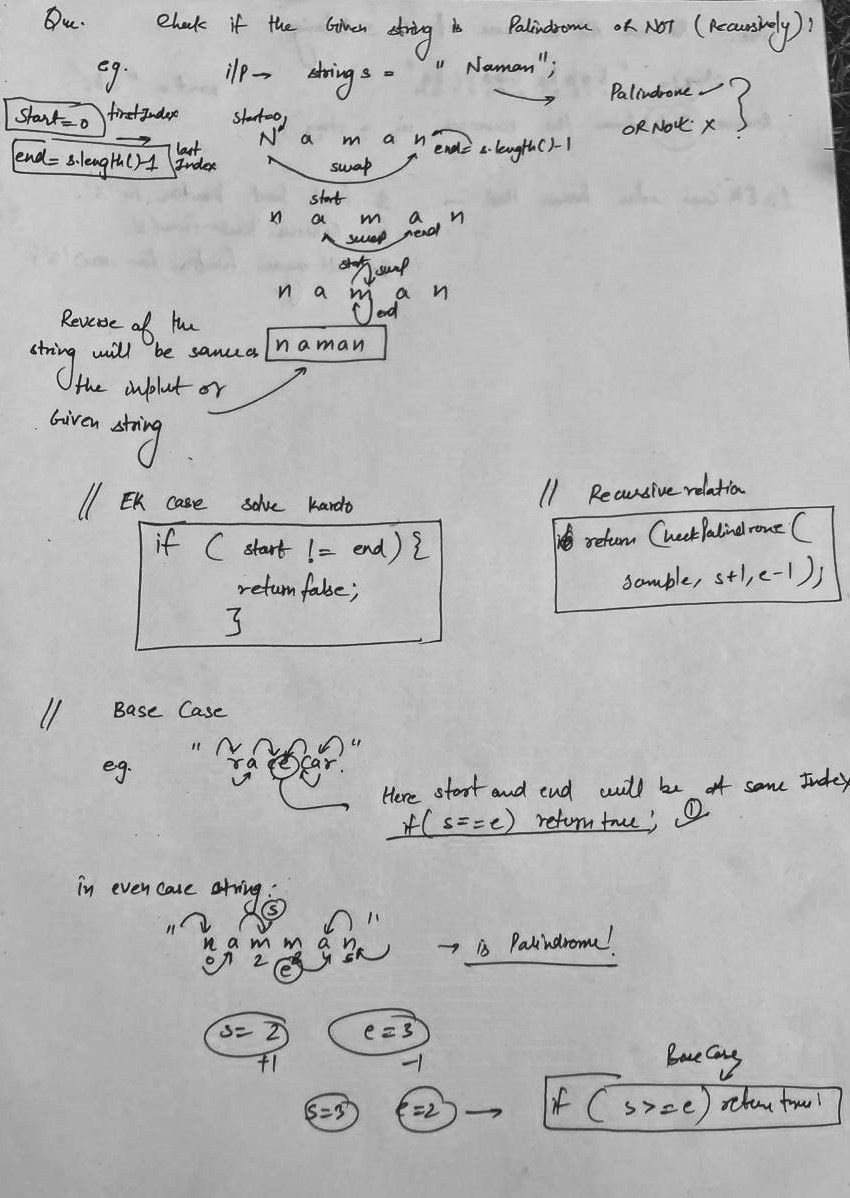 Que. Check if the Given string is Palindrome OR NOT (Recursively)?
eg. i/p → string s = "Naman";
Palindrone ✓
OR Not: x
Start=0 firstIndex
end= s.length()-1 last Index
start=0
N a m a n end= s.length()-1
swap
start
n a m a n
swap end
start swap
n a m a n
end
Reverse of the
string will be same as naman
the input or
Given string
// EK case solve kardo
if ( start != end) {
return false;
}
// Recursive relation
return CheckPalindrome(
sample, s+1, e-1);
// Base Case
eg. "racecar"
Here start and end will be at same Index
if( s==e) return true; ①
in even case string:
s
"n a m m a n" → is Palindrome!
0 1 2 3 4 5
e
s= 2 e=3
+1 -1
s=3 e=2 →
Base Case
if ( s>=e) return true!